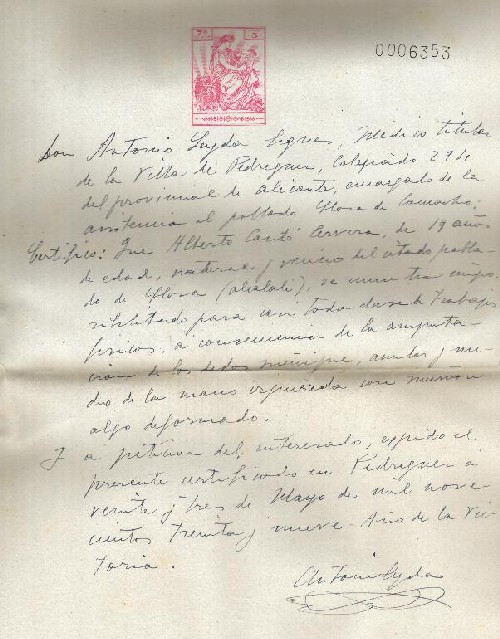 7ª
0006353
Don Antonio Sagua, Médico titular
de la Villa de Pedreguer, Colegiado 27 de
del provincial de Alicante, encargado de la
asistencia al poblado Llosa de Camacho;
Certifico: Que Alberto Cantó Cervera, de 19 años
de edad, natural y vecino del citado pobla-
do de Llosa (Alcalalí), se encuentra impo-
sibilitado para casi toda clase de trabajos
físicos, a consecuencia de la amputa-
ción de los dedos meñique, anular y me-
dio de la mano izquierda con muñón
algo deformado.
Y a petición del interesado, expido el
presente certificado en Pedreguer a
veinte y tres de Mayo de mil nove-
cientos treinta y nueve. Año de la Vic-
toria.
Antonio